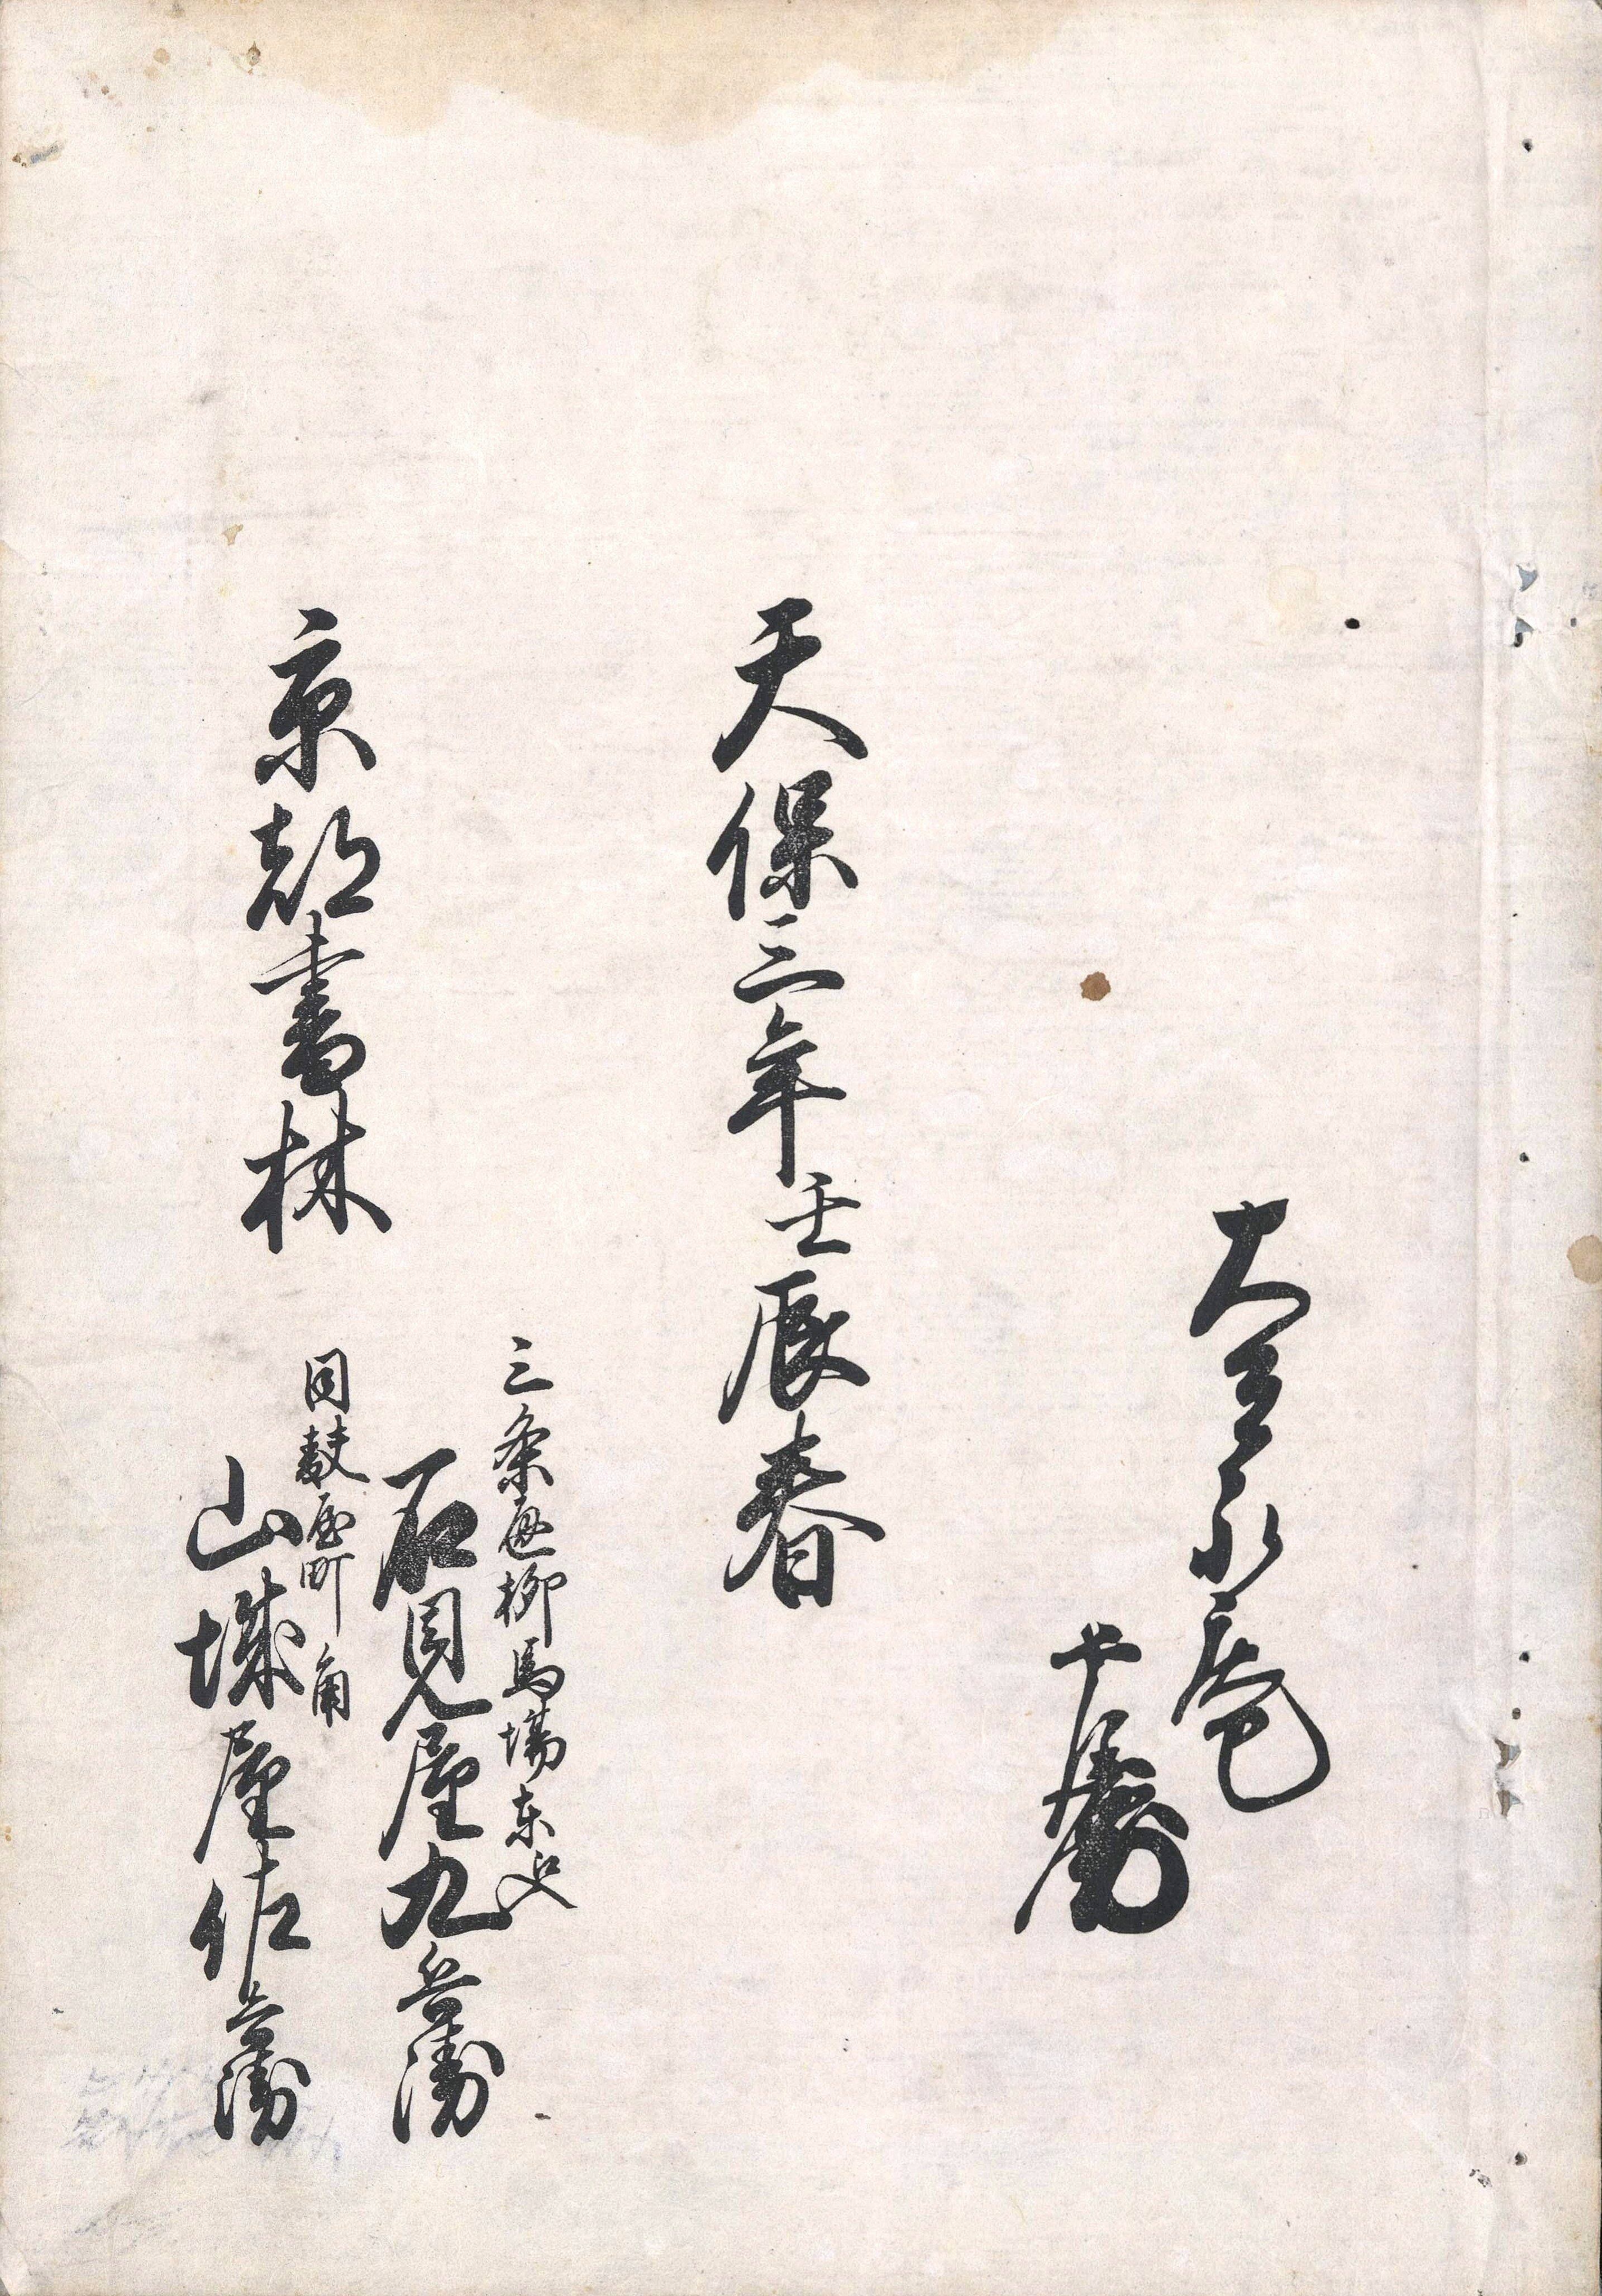 天保三年壬辰春
京都書林
三条通柳馬場東入
石見屋九兵衛
同麸屋町角
山城屋佐兵衛